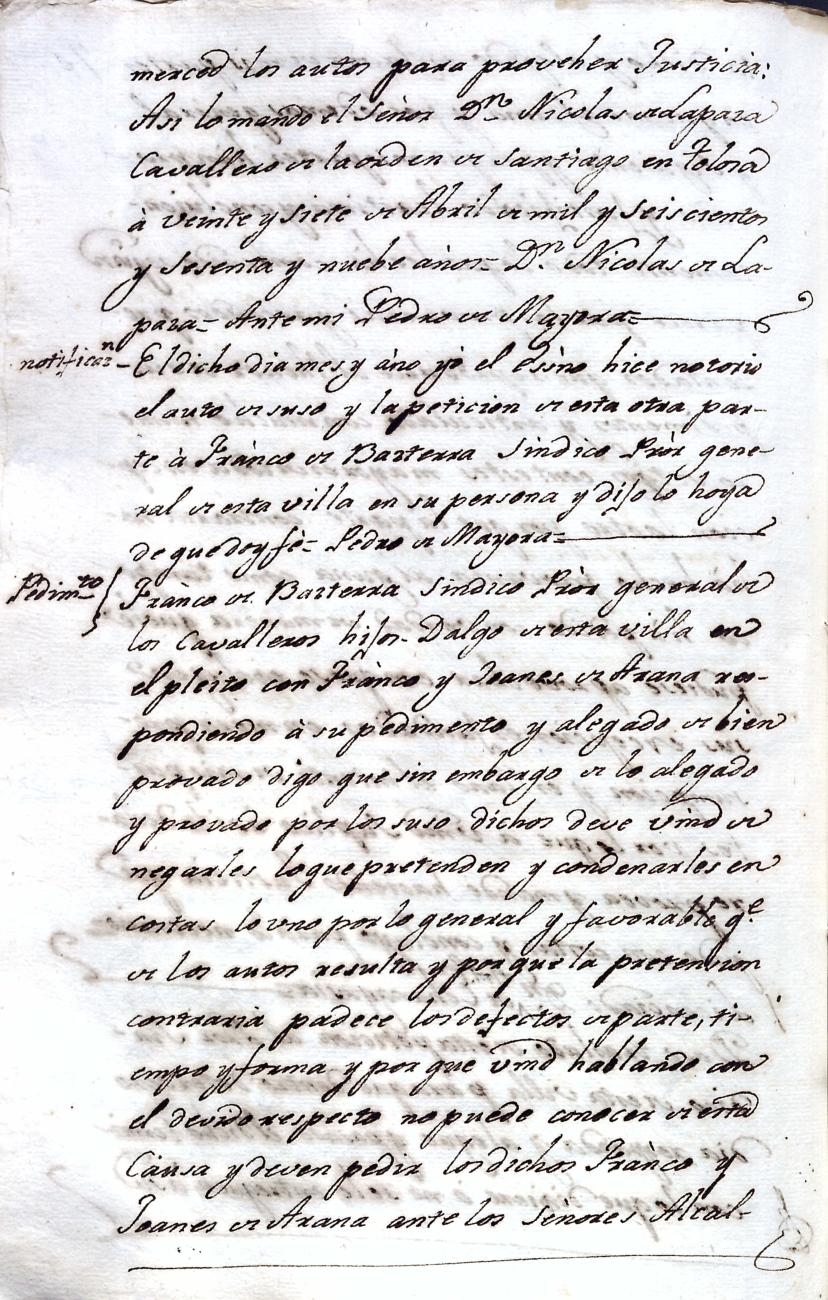 merced los autos para proveher Justicia:
Asi lo mando el Señor Dn. Nicolas de Lapaza
Cavallero de la orden de Santiago en Tolosa
à veinte y siete de Abril de mil y seis cientos
y sesenta y nuebe años= Dn. Nicolas de La-
paza= Ante mi Pedro de Mayora=
notificazn- El dicho dia mes y año yò el essno hice notorio
el auto de suso y la peticion de esta otra par-
te à Franco de Bazterra Sindico Pròr gene-
ral de esta villa en su persona y dijo lo hoya
de que doy fè= Pedro de Mayora=
Pedimto Franco de Bazterra Sindico Pròr general de
los Cavalleros hijos-Dalgo de esta villa en
el pleito con Franco y Joanes de Arana res-
pondiendo à su pedimento y alegado de bien
provado digo que sin embargo de lo alegado
y provado por los suso dichos deve vmd de
negarles lo que pretenden y condenarles en
costas lo uno por lo general y favorable qe.
de los autos resulta y porque la pretension
contraria padece los defectos de parte, ti-
empo y forma y por que vmd hablando con
el devido respecto no puede conocer de esta
Causa y deven pedir los dichos Franco y
Joanes de Arana ante los Señores Alcal-